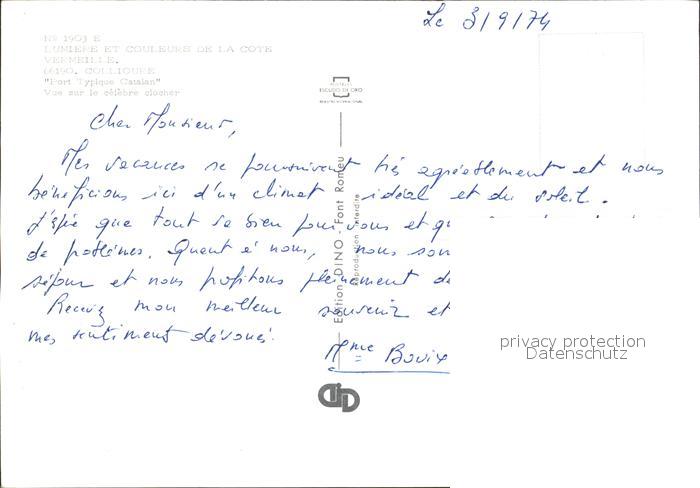 Le 3/9/74
Nº 1903 E
LUMIERE ET COULEURS DE LA COTE
VERMEILLE.
66190. COLLIOURE
"Port Typique Catalan"
Vue sur le célèbre clocher
ESCUDO DE ORO
Cher Monsieur,
Mes vacances se poursuivent très agréablement et nous
bénéficions ici d'un climat idéal et du soleil.
J'espère que tout va bien pour vous et
de problèmes. Quant à nous, nous
séjour et nous profitons pleinement de
Recevez mon meilleur souvenir et
mes sentiments dévoués.
Mme
Edition DINO - Font Romeu
Reproduction interdite
privacy protection
Datenschutz